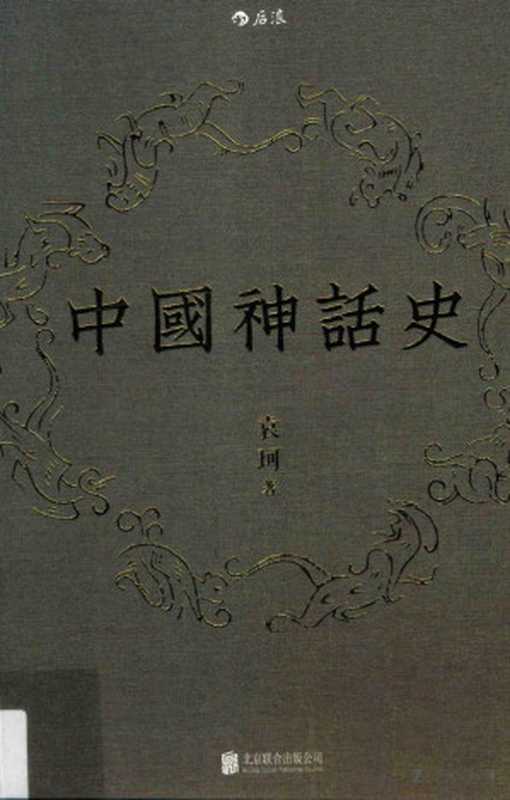 后浪
中國神話史
袁珂
著
北京联合出版公司